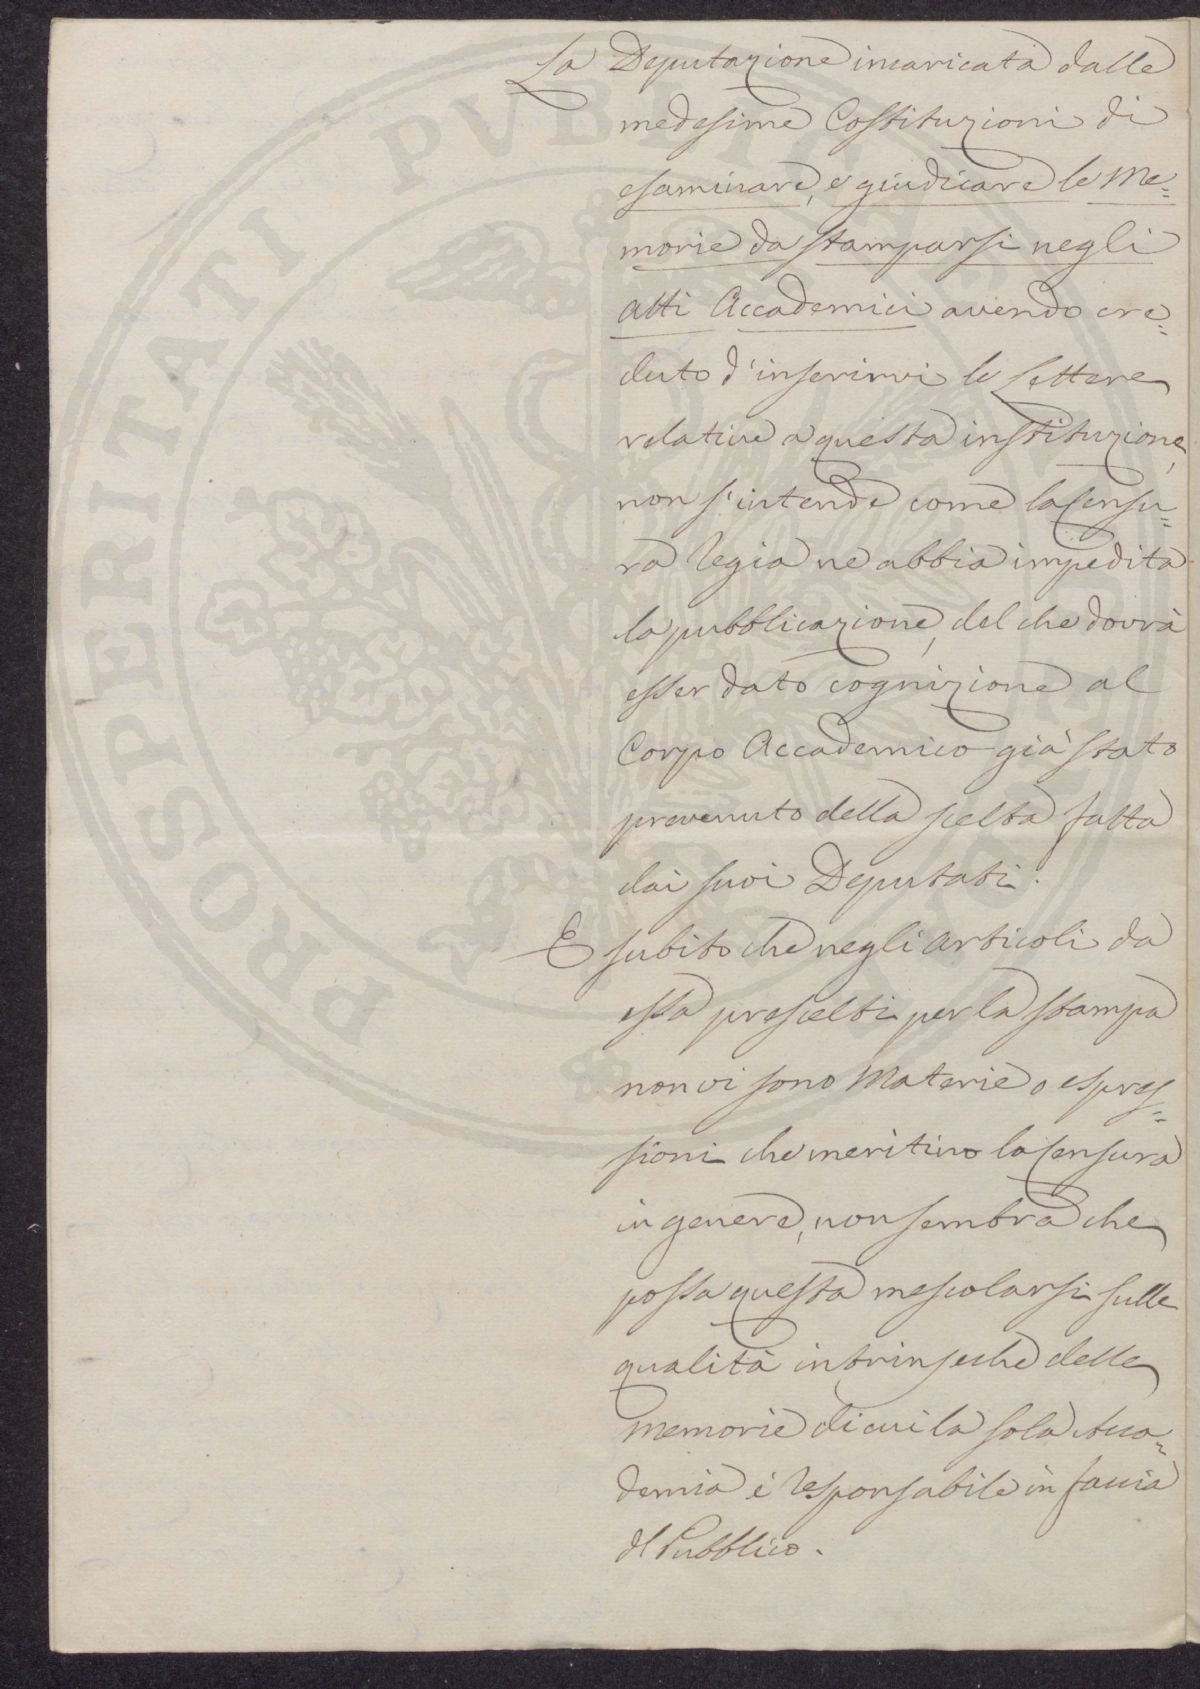 La Deputazione incaricata dalle
medesime Costituzioni di
esaminare, e giudicare le Me=
morie da stamparsi negli
Atti Accademici avendo cre=
duto d'inserirvi le Lettere
relative a questa instituzione,
non s'intende come la Censu=
ra Regia ne abbia impedita
la pubblicazione, del che dovrà
esser dato cognizione al
Corpo Accademico già stato
prevenuto della scelta fatta
dai suoi Deputati.
E subito che negli articoli da
essa prescelti per la stampa
non vi sono Materie o espres=
sioni che meritino la Censura
in genere, non sembra che
possa questa mescolarsi sulle
qualità intrinseche delle
Memorie di cui la sola Acca=
demia è responsabile in faccia
al Pubblico.
PROSPERITATI PVBLIC